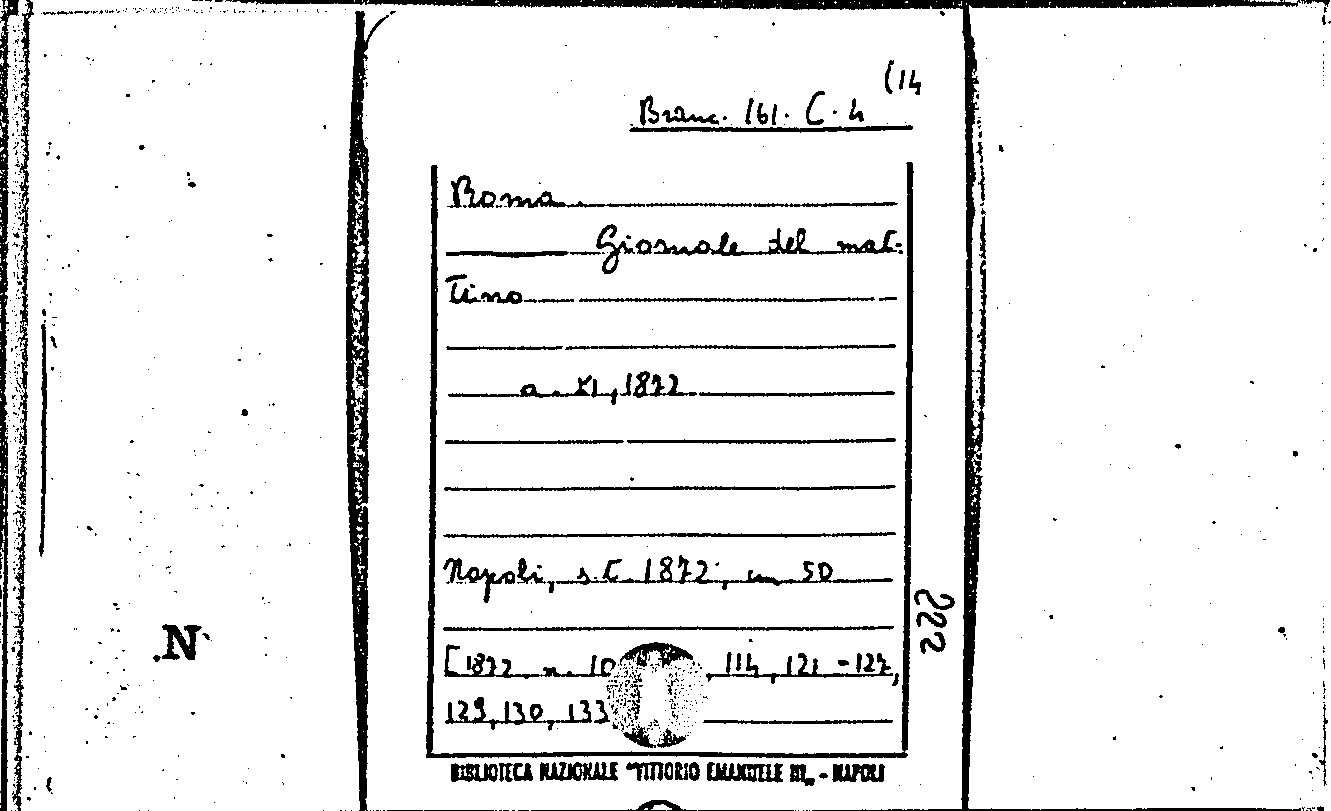 (14
Branc. 161. C. 4
Roma.
Giornale del mat-
tino
a. XI, 1872
Napoli, s.t. 1872, cm 50
[1872 n. 10 , 114, 121-127,
129, 130, 133
222
N
BIBLIOTECA NAZIONALE "VITTORIO EMANUELE III„ - NAPOLI